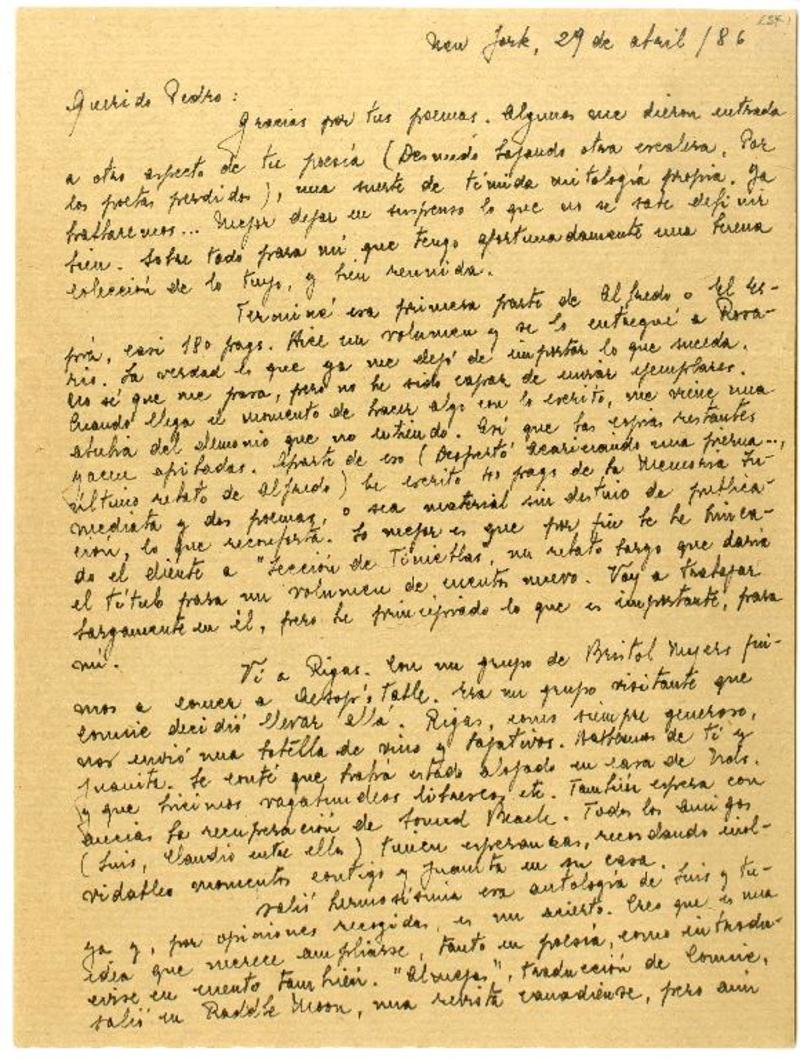 New York, 29 de abril / 86
Querido Pedro:
Gracias por tus poemas. Algunos me dieron entrada
a otro aspecto de tu poesía (Desnudo bajando otra escalera, Por
los poetas perdidos), una suerte de tímida mitología propia. Ya
hablaremos... Mejor dejar en suspenso lo que no se sabe definir
bien. Sobre todo para mí que tengo afortunadamente una buena
colección de lo tuyo, y bien reunida.
Terminé esa primera parte de Alfredo o El Es-
pía, casi 180 pags. Hice un volumen y se lo entregué a Rosa-
rio. La verdad es que ya me dejó de importar lo que suceda.
No sé que me pasa, pero no he sido capaz de enviar ejemplares.
Cuando llega el momento de hacer algo con lo escrito, me viene una
abulia del demonio que no entiendo. Así que las copias restantes
yacen apiladas. Aparte de eso (Despertó acariciando una pierna...,
último relato de Alfredo) he escrito 40 pags de la Memoria In-
mediata y dos poemas, o sea material sin destino de publica-
ción, lo que reconforta. Lo mejor es que por fin le he hinca-
do el diente a "Lección de Tinieblas", un relato largo que daría
el título para un volumen de cuentos nuevo. Voy a trabajar
largamente en él, pero he principiado lo que es importante, para
mí.
Vi a Rigas. Con un grupo de Bristol Myers fui-
mos a comer a Aesop's Table. Era un grupo visitante que
Connie decidió llevar allá. Rigas, como siempre generoso,
nos envió una botella de vino y bajativos. Hablamos de ti y
Juanita. Le conté que había estado alojado en casa de Uds.
y que hicimos vagabundeos librescos, etc. También espera con
ansias la recuperación de Sound Beach. Todos los amigos
(Luis, Claudio entre ellos) tienen esperanzas, recordando inol-
vidables momentos contigo y Juanita en su casa.
Salió hermosísima esa antología de Luis y tu-
ya y, por opiniones recogidas, es un acierto. Creo que es una
idea que merece ampliarse, tanto en poesía, como introdu-
cirse en cuento también. "Almejas", traducción de Connie,
salió en Raddle Moon, una revista canadiense, pero aún